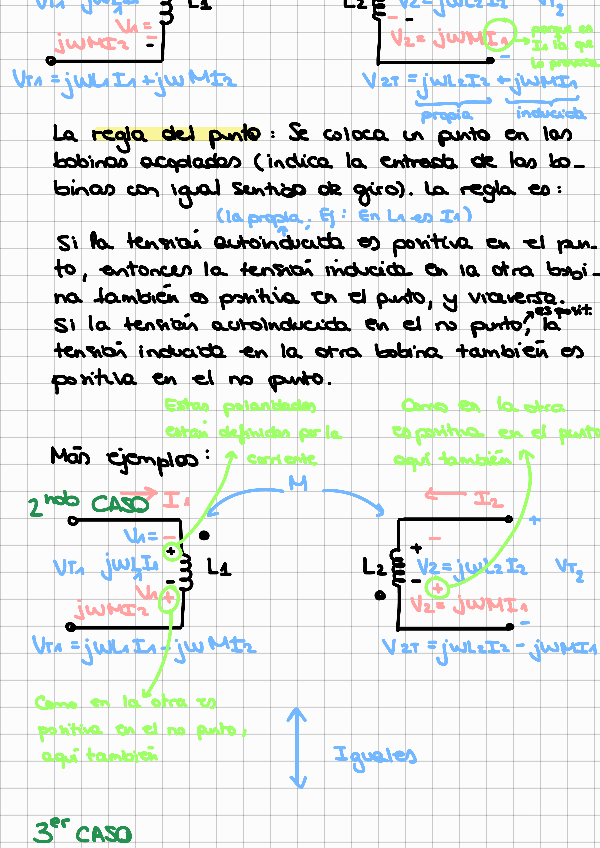 VT1 jωL1I1 V1= - L1
jωMI2 -
VT1 = jωL1I1 + jωMI2
L2 - V2=jωL2I2 VT2
- V2=jωMI1 → porque es
I1 la que
lo provoca
V2T = jωL2I2 + jωMI1
propia inducida
La regla del punto: Se coloca un punto en las
bobinas acopladas (indica la entrada de las bo-
binas con igual sentido de giro). La regla es:
(la propia, Ej: En L1 es I1)
Si la tensión autoinducida es positiva en el pun-
to, entonces la tensión inducida en la otra bobi-
na también es positiva en el punto, y viceversa.
es posit.
Si la tensión autoinducida en el no punto, la
tensión inducida en la otra bobina también es
positiva en el no punto.
Estas polaridades
están definidas por la
corriente
Como en la otra
es positiva en el punto
aquí también
Más ejemplos:
M
2ndo CASO → I1
← I2
V1= -
+
VT1 jωL1I1 - L1
V1 +
jωMI2
VT1 = jωL1I1 - jωMI2
- +
+
L2 V2=jωL2I2 VT2
- +
V2=jωMI1
-
V2T = jωL2I2 - jωMI1
Como en la otra es
positiva en el no punto,
aquí también
Iguales
3er CASO